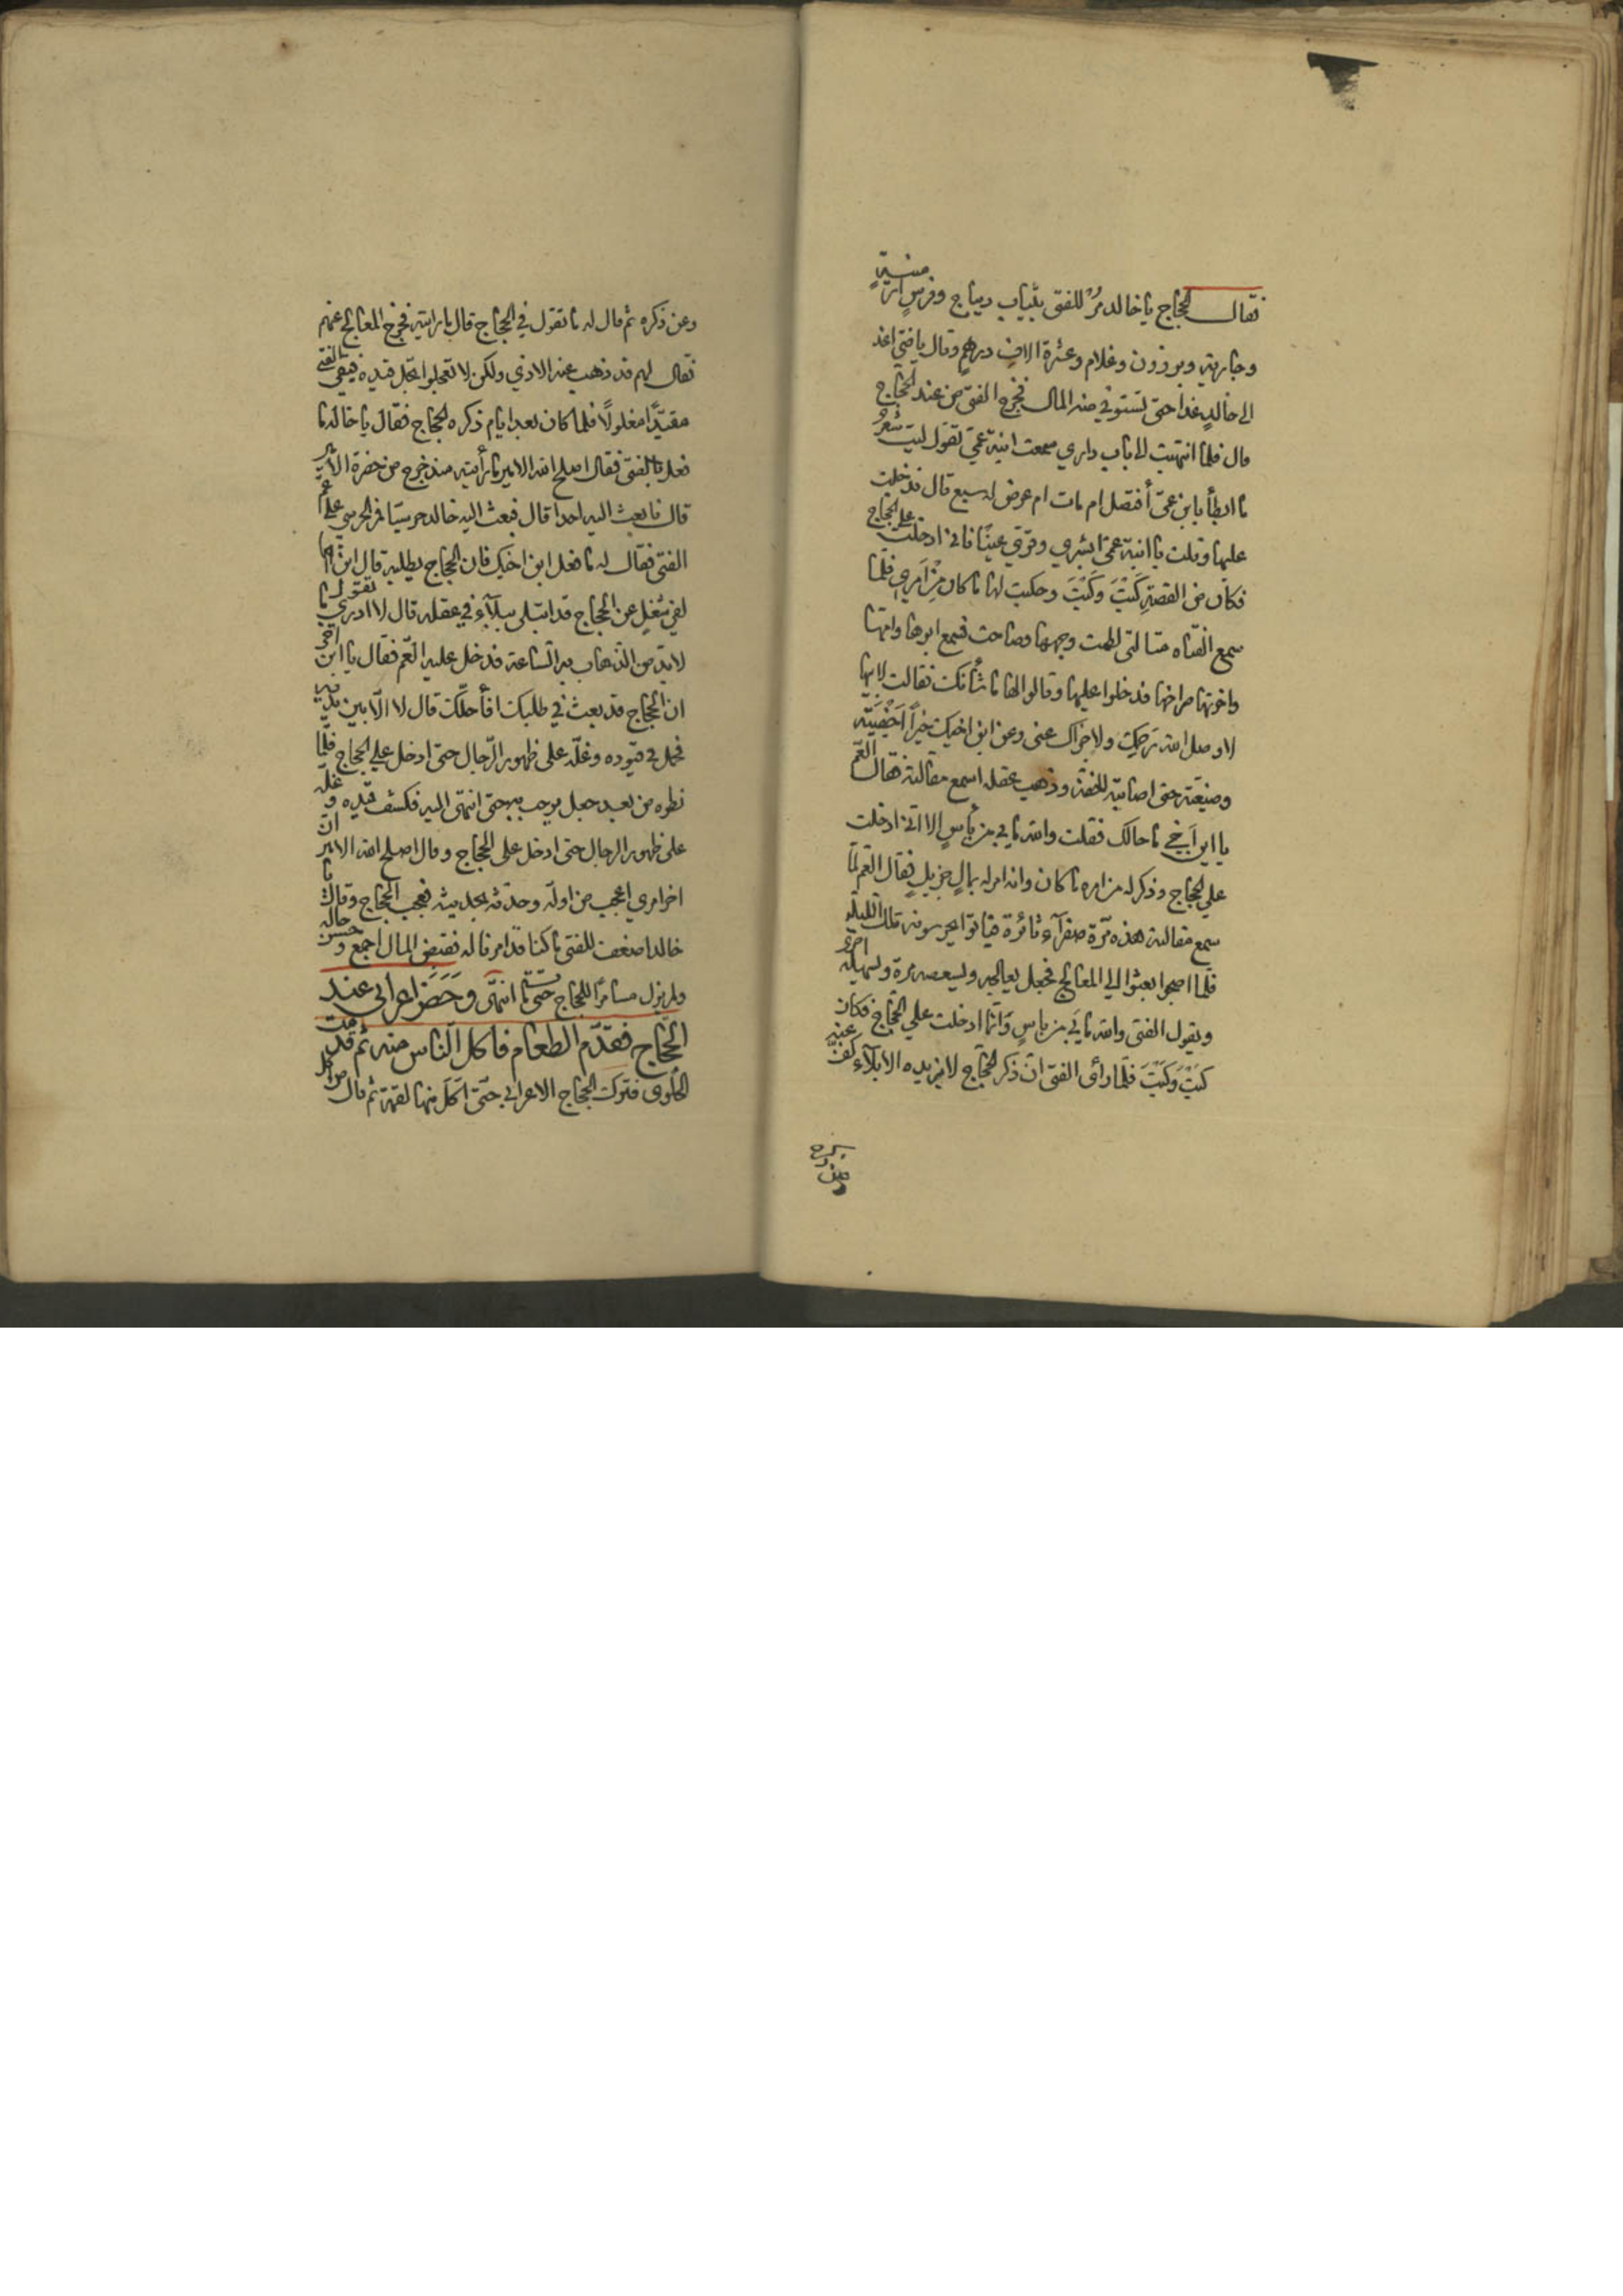 فقال الحجاج يا خالد مُرْ للفتى بثياب ديباج وفرس ارمنيةٍ
وجاريةٍ وبرذون وغلام وعشرة الاف درهمٍ وقال يا فتى اغد
الى خالدٍ غدا حتى تستوفي منه المال فخرج الفتى من عند الحجاج
قال فلما انتهيت الى باب داري سمعت ابنة عمي تقول ليت شعري
ما ابطأ بابن عمى أقتل ام مات ام عرض له سبع قال فدخلت
عليها وقلت يا ابنة عمى ابشري وقرّي عينًا فاني ادخلت على الحجاج
فكان من القصةِ كَيْتَ وَكَيْتَ وحكيت لها ما كان مِنْ اَمرِي فلمّا
سمع الفتاه مقالتى لطمت وجهها وصاحت فسمع ابوها وامها
واخوتها صراخها فدخلوا عليها وقالوا لها ما شأنك فقالت لابيها
لا وصل الله رحمك ولا جزاك عنى وعن ابن اخيك خيرًا اَجْفَيْتَه
وضيعته حتى اصابته الخفة وذهب عقله اسمع مقالته فقال العّم
يا ابن اَخي ما حالك فقلت والله ما بي من بأسٍ الا اني ادخلت
على الحجاج وذكر له من امره ما كان وانه امر له بمالٍ جزيلٍ فقال العم لمّا
سمع مقالته هذه مِّرة صفرآء ثائرة فباتوا يحرسونه تلك الليلة
فلما اصبحوا بعثوا الى المعالج فجعل يعالجه ويسعطه مرة ويسهله اخرى
ويقول الفتى والله ما بَي من باسٍ وانما ادخلت على الحجّاج فكان
كَيْتَ وَكَيْتَ فلمّا رأى الفتى انّ ذكر الحجّاج لا يزيده الا بلآءً كفّ عنه
وعن ذكره
وعن ذكره ثم قال له ما تقول في الحجاج قال ما رايته فخرج المعالج عنهم
فقال لهم قد ذهب عنه الاذي ولكن لا تعجلوا بحل قيده فبقى الفتى
مقيدًا مغلولًا فلما كان بعد ايام ذكره الحجاج فقال يا خالد ما
فعل بالفتى فقال اصلح الله الامير ما رأيته منذ خرج من حضرة الامير
قال فابعث اليه احدا قال فبعث اليه خالد حرسيّا فمرّ الحرسي على عم
الفتى فقال له ما فعل ابن اخيك فان الحجاج يطلبه قال ابن اخي
لفي شغلٍ عن الحجاج قد ابتلى ببلآءٍ في عقله قال لا ادري ما تقول
لابدّ من الذهاب به الساعة فدخل عليه العّم فقال يا ابن اخي
ان الحجاج قد بعث في طلبك افأحلّك قال لا الّا بين يديه
فحمل في قيوده وغلّه على ظهور الرّجال حتى ادخل على الحجاج فلمّا
نظره من بعيد جعل يرحب به حتى انتهى اليه فكشف قيده وغلّه
على ظهور الرجال حتى ادخل على الحجاج وقال اصلح الله الامير انّ
اخر امري اعجب من اوله وحدّثه بحديثه فعجب الحجاج وقال يا
خالد اضعف للفتى ما كنا قد امرنا له فقبض المال اجمع وحسن حاله
ولم يزل مسامرًا للحجاج حتى مات انتهى وحَضَرَ اعرابى عند
الحجّاج فقدّم الطعام فاكل الناس منه ثم قدمت
الحلوى فترك الحجاج الاعرابي حتى اكل منها لقمة ثم قال من اكل